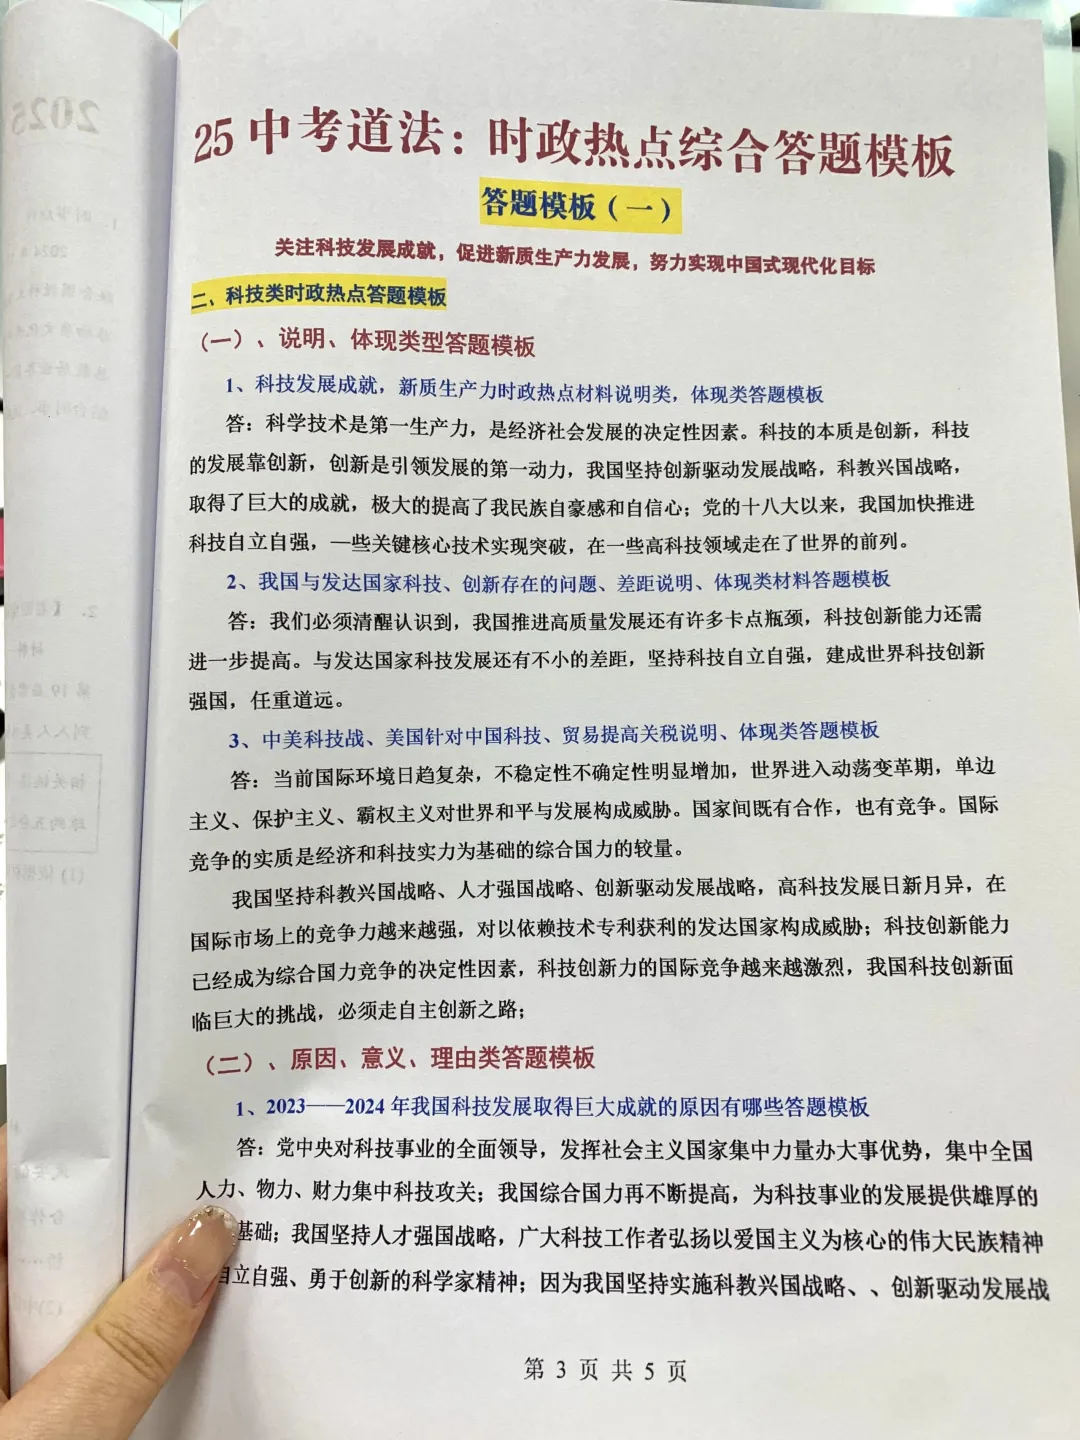 25中考道法：时政热点综合答题模板
答题模板（一）
关注科技发展成就，促进新质生产力发展，努力实现中国式现代化目标
二、科技类时政热点答题模板
（一）、说明、体现类型答题模板
1、科技发展成就，新质生产力时政热点材料说明类，体现类答题模板
答：科学技术是第一生产力，是经济社会发展的决定性因素。科技的本质是创新，科技
的发展靠创新，创新是引领发展的第一动力，我国坚持创新驱动发展战略，科教兴国战略，
取得了巨大的成就，极大的提高了我民族自豪感和自信心；党的十八大以来，我国加快推进
科技自立自强，一些关键核心技术实现突破，在一些高科技领域走在了世界的前列。
2、我国与发达国家科技、创新存在的问题、差距说明、体现类材料答题模板
答：我们必须清醒认识到，我国推进高质量发展还有许多卡点瓶颈，科技创新能力还需
进一步提高。与发达国家科技发展还有不小的差距，坚持科技自立自强，建成世界科技创新
强国，任重道远。
3、中美科技战、美国针对中国科技、贸易提高关税说明、体现类答题模板
答：当前国际环境日趋复杂，不稳定性不确定性明显增加，世界进入动荡变革期，单边
主义、保护主义、霸权主义对世界和平与发展构成威胁。国家间既有合作，也有竞争。国际
竞争的实质是经济和科技实力为基础的综合国力的较量。
我国坚持科教兴国战略、人才强国战略、创新驱动发展战略，高科技发展日新月异，在
国际市场上的竞争力越来越强，对以依赖技术专利获利的发达国家构成威胁；科技创新能力
已经成为综合国力竞争的决定性因素，科技创新力的国际竞争越来越激烈，我国科技创新面
临巨大的挑战，必须走自主创新之路；
（二）、原因、意义、理由类答题模板
1、2023——2024年我国科技发展取得巨大成就的原因有哪些答题模板
答：党中央对科技事业的全面领导，发挥社会主义国家集中力量办大事优势，集中全国
人力、物力、财力集中科技攻关；我国综合国力再不断提高，为科技事业的发展提供雄厚的
基础；我国坚持人才强国战略，广大科技工作者弘扬以爱国主义为核心的伟大民族精神
自立自强、勇于创新的科学家精神；因为我国坚持实施科教兴国战略、、创新驱动发展战
第 3 页 共 5 页